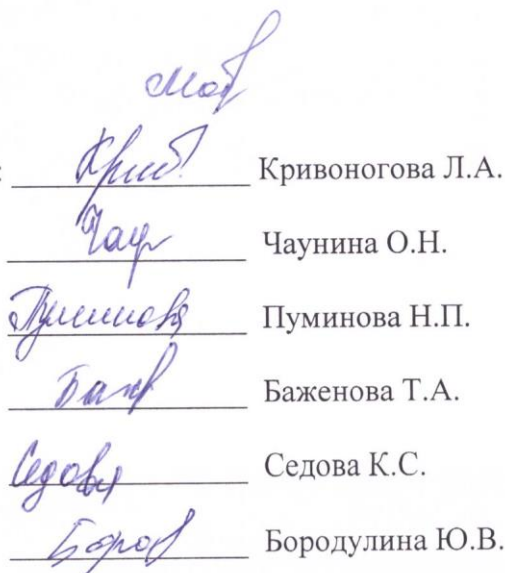 Кривоногова Л.А.
Чаунина О.Н.
Пуминова Пуминова Н.П.
Баженова Т.А.
Седова Седова К.С.
Бородулина Ю.В.